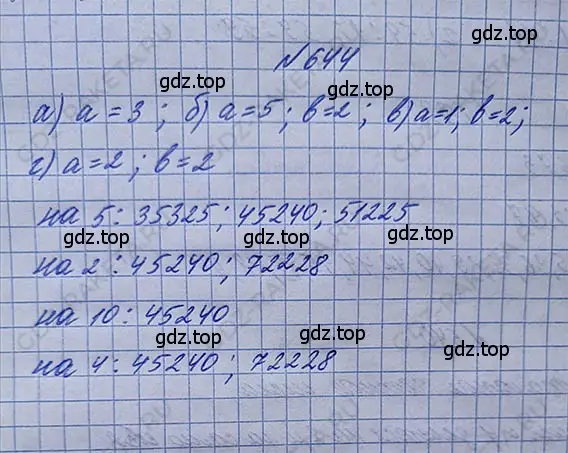 №644
gdz.top gdz.top
а) а = 3 ; б) а = 5 ; в = 2 ; в) а = 1 ; в = 2 ;
г) а = 2 ; в = 2
на 5 : 35325 ; 45240 ; 51225
gdz.top gdz.top
на 2 : 45240 ; 72228
на 10 : 45240
gdz.top gdz.top
на 4 : 45240 ; 72228